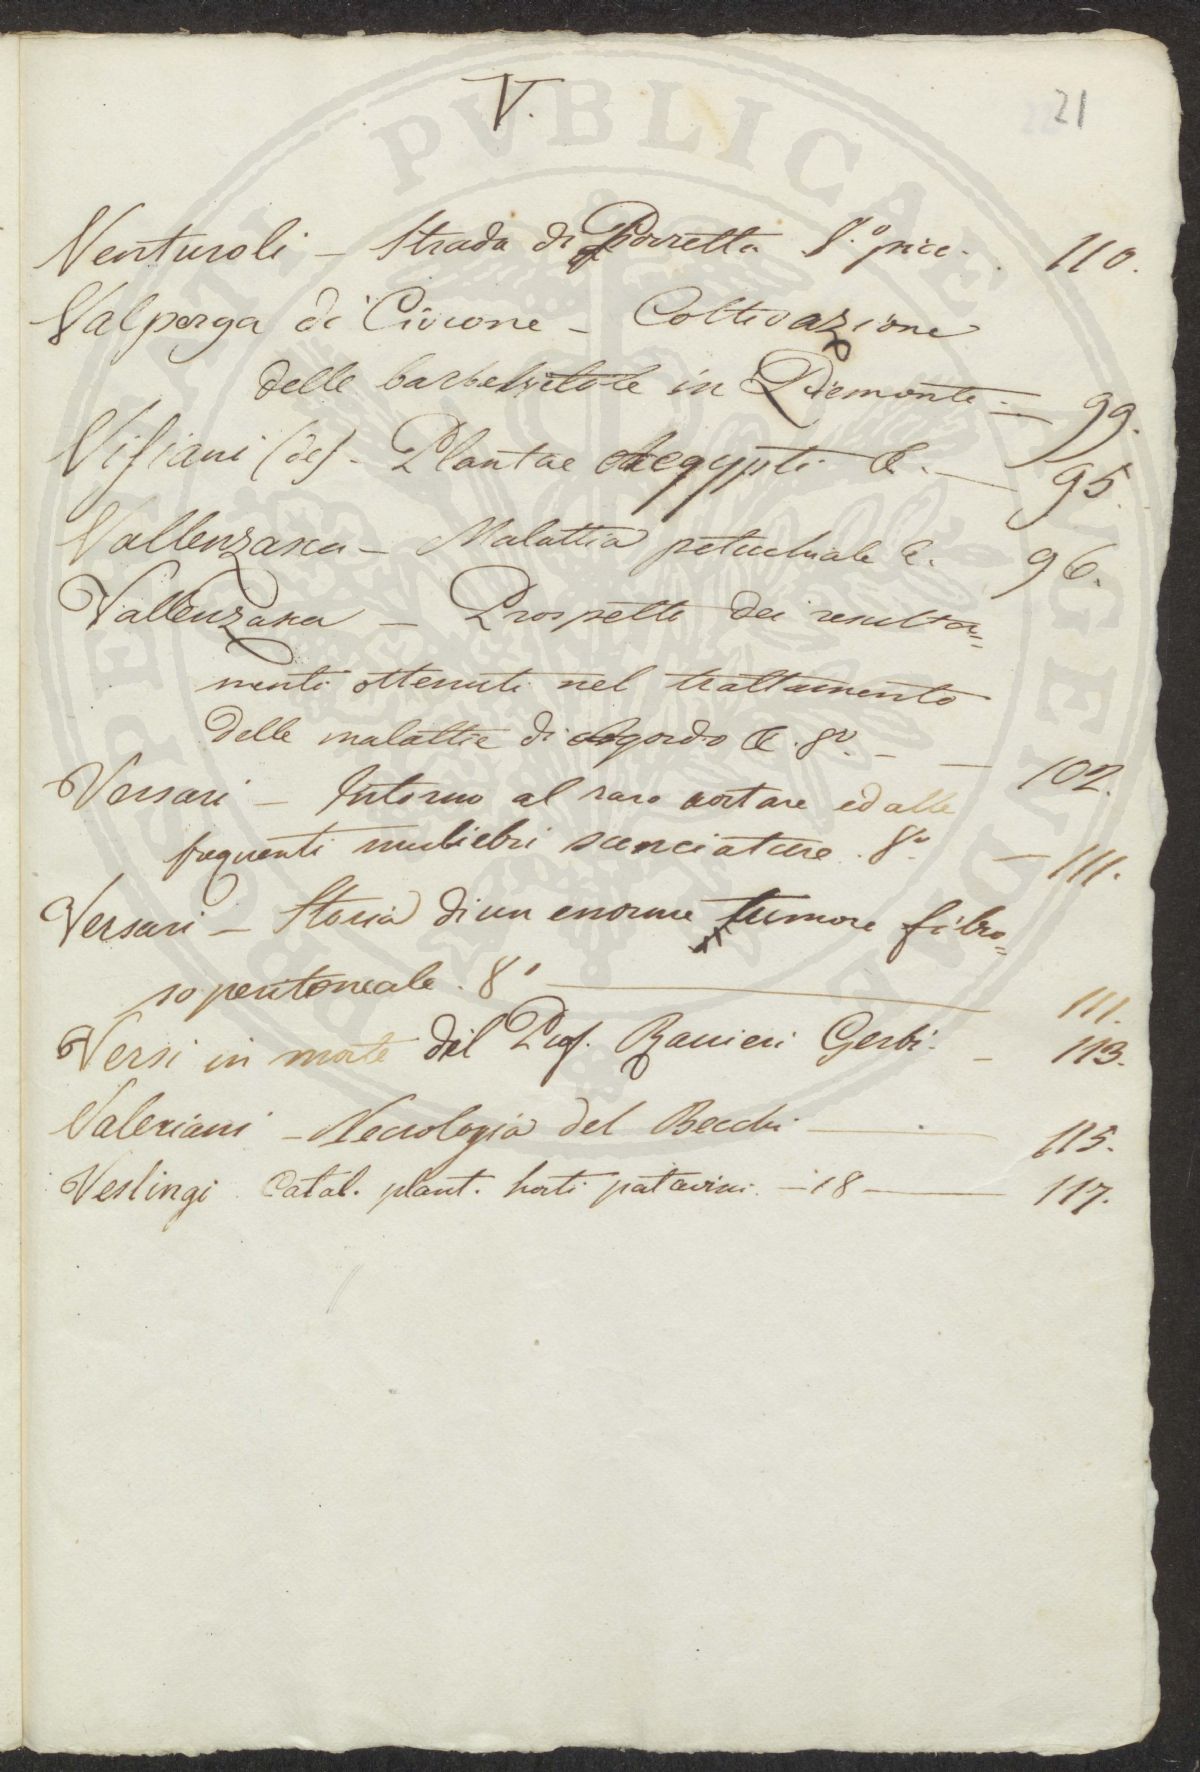 V.
21
Venturoli – Strada di Porretta 8.º picc. . 110.
Valperga di Civrone – Coltivazione
delle barbabietole in Piemonte – 99.
Visiani (de) – Plantae Aegypti &. — 95.
Vallenzasca – Malattia petecchiale &. 96.
Vallenzasca – Prospetto dei resulta=
menti ottenuti nel trattamento
delle malattie di Agordo &. 8º. – — 102.
Versari – Intorno al raro ed alle
frequenti muliebri sconciature. 8º. — 111.
Versari – Storia di un enorme tumore fibro=
so peritoneale. 8º — 111.
Versi in morte del Prof. Ranieri Gerbi. – 113.
Valeriani – Necrologia del Becchi — 115.
Veslingi Catal. plant. horti patavini. – 18 — 117.